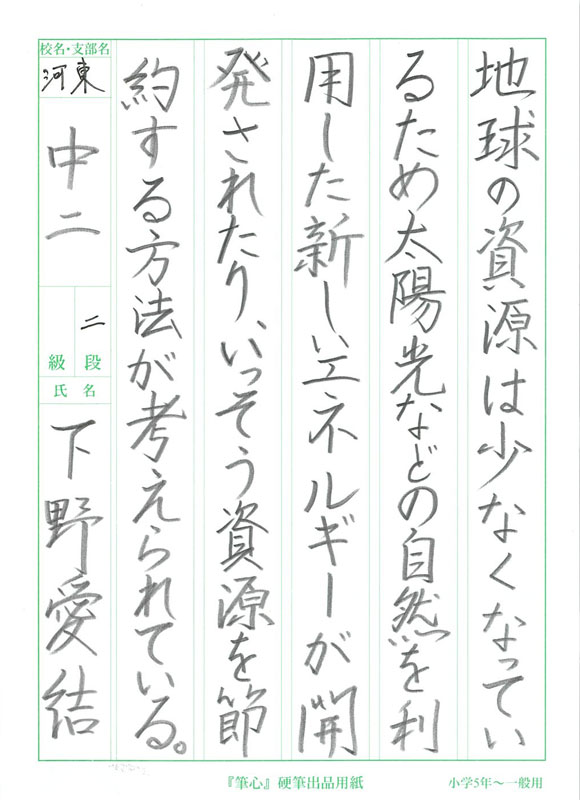 地球の資源は少なくなってい
るため太陽光などの自然を利
用した新しいエネルギーが開
発されたり、いっそう資源を節
約する方法が考えられている。
校名・支部名
河東
中二
二
段
級
氏名
下野愛結
『筆心』硬筆出品用紙
小学5年～一般用